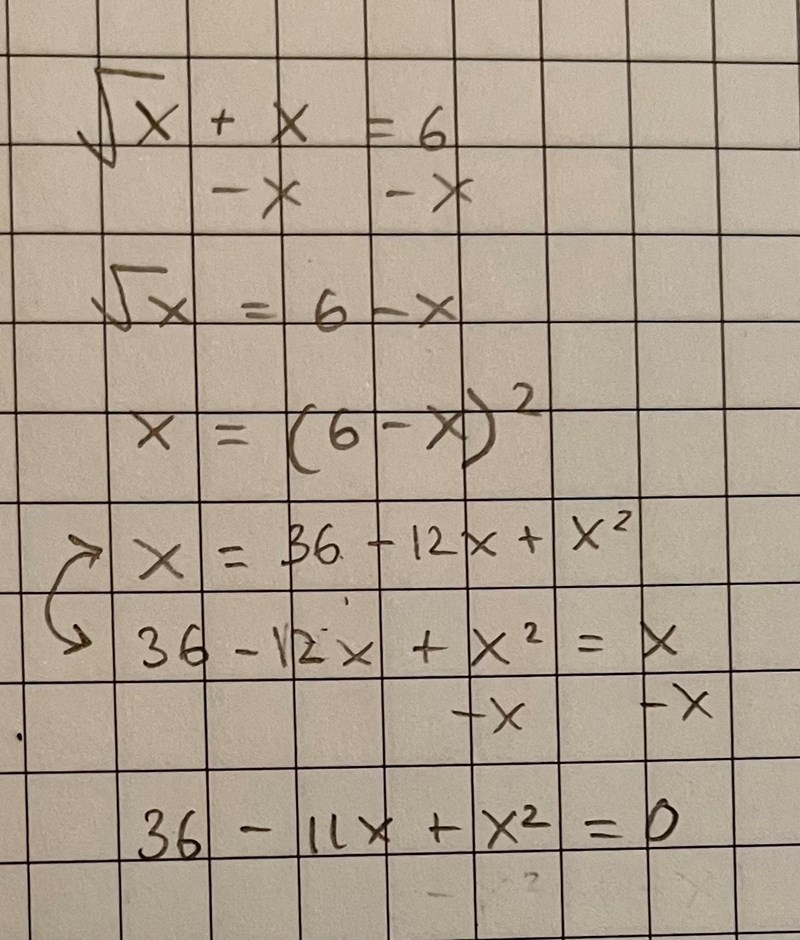 √x + x = 6
-x -x
√x = 6 - x
x = (6 - x)²
x = 36 - 12x + x²
36 - 12x + x² = x
-x -x
36 - 11x + x² = 0